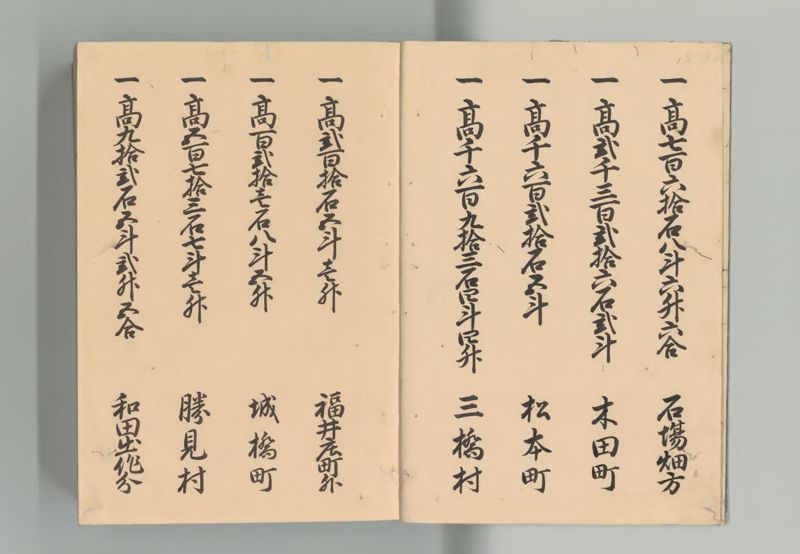 一高七百六拾石八斗六升六合 石場畑方
一高弐千三百弐拾六石弐斗 木田町
一高千六百弐拾石五斗 松本町
一高千六百九拾三石四斗四升 三橋村
一高弐百拾石五斗壱升 福井庄町外
一高百弐拾壱石八斗五升 城橋町
一高五百七拾三石七斗壱升 勝見村
一高九拾弐石五斗弐升五合 和田出作分